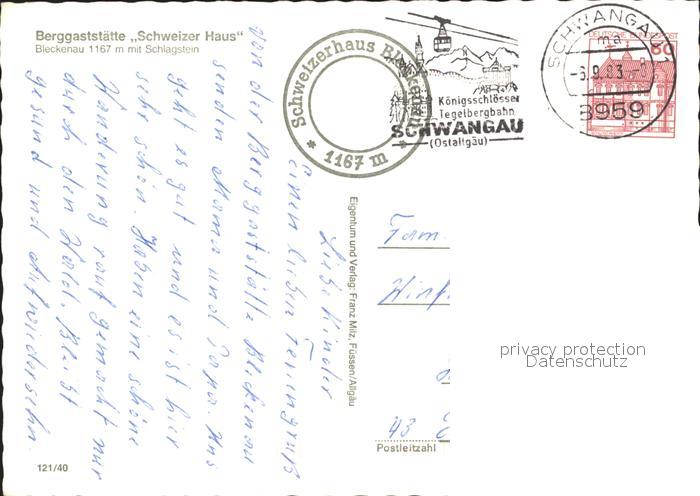 Berggaststätte „Schweizer Haus"
Bleckenau 1167 m mit Schlagstein
Schweizerhaus Bleckenau
* 1167 m *
Königsschlösser
Tegelbergbahn
SCHWANGAU
(Ostallgäu)
SCHWANGAU 1
ma
-6.9.83
8959
DEUTSCHE BUNDESPOST
60
Liebe Kinder
Einen lieben Feriengruß
von der Berggaststätte Bleckenau
senden Mama und Papa. Uns
geht es gut und es ist hier
sehr schön. Haben eine schöne
Wanderung rauf gemacht nur
durch den Wald. Bleibt
gesund und Aufwiedersehn.
Eigentum und Verlag: Franz Milz, Füssen/Allgäu
Fam
43
Postleitzahl
121/40
privacy protection
Datenschutz